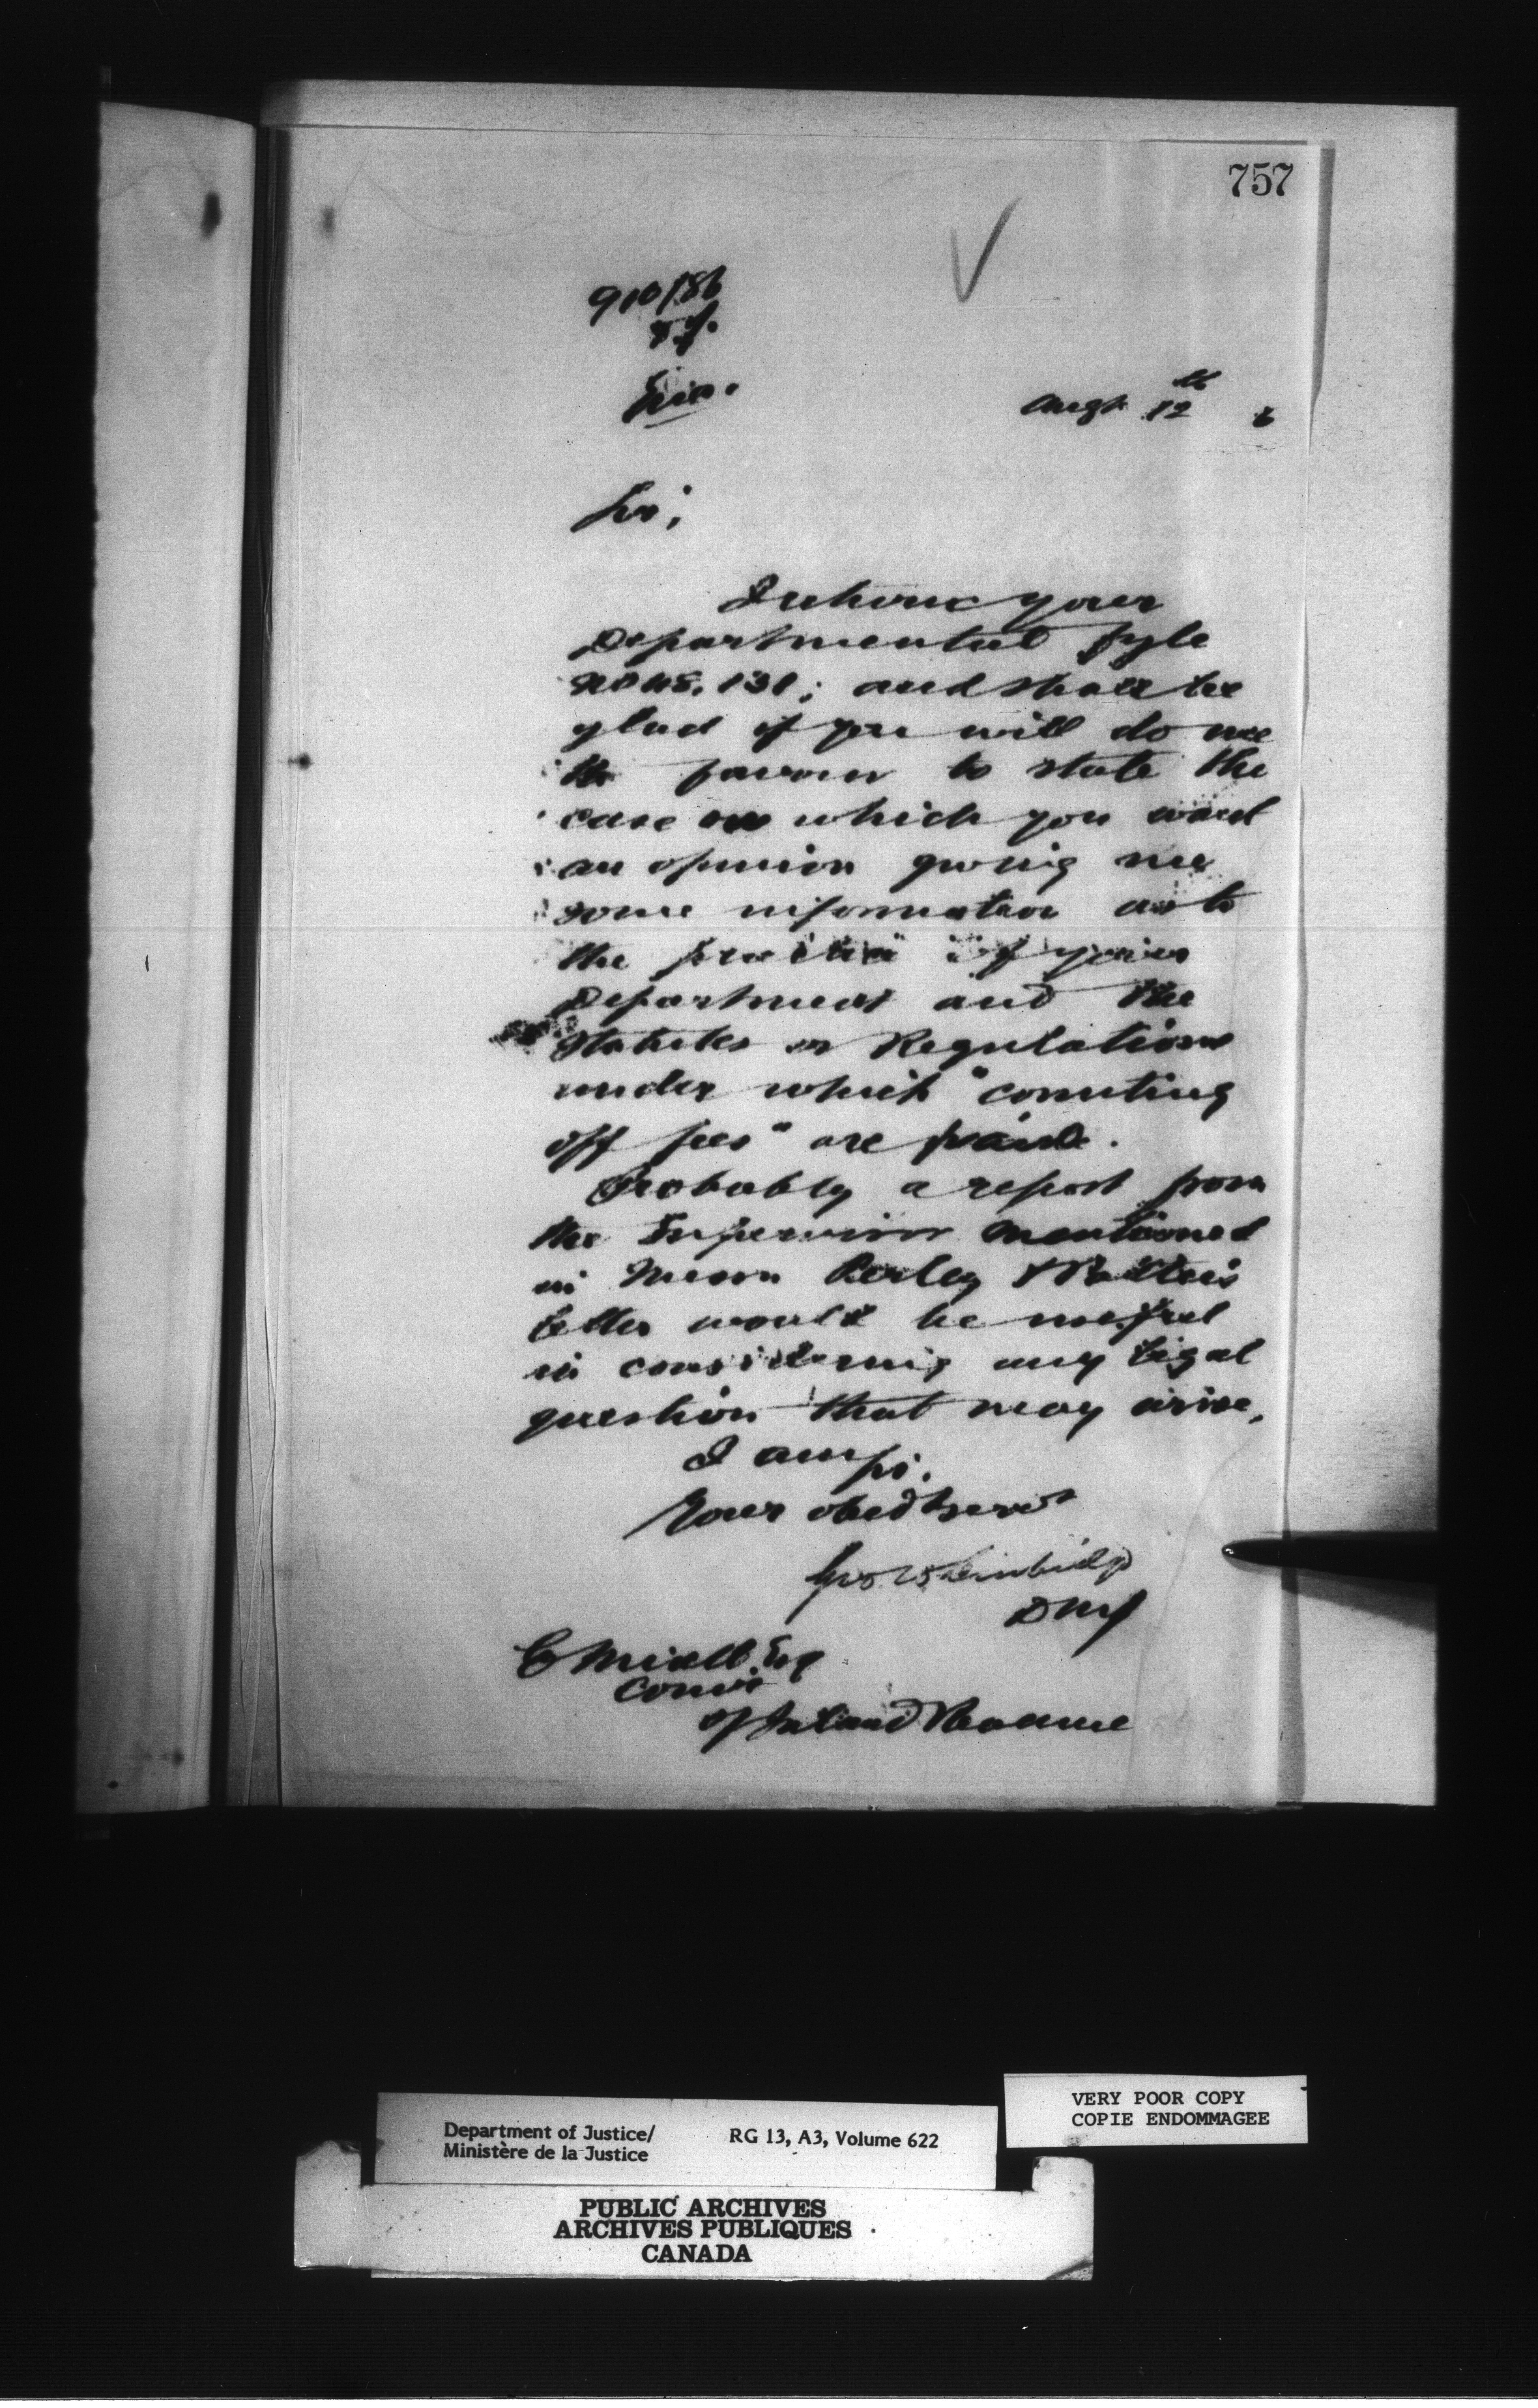 757
910/86
Augt 12th 6
Sir,
I return your
Departmental fyle
No 45,131; and shall be
glad if you will do me
the favour to state the
case on which you want
an opinion giving me
some information as to
the practice of your
Department and the
Statutes or Regulations
under which "counting
off fees" are paid.
Probably a report from
the Supervisor mentioned
in Messrs Perley &
letter would be useful
in considering any legal
question that may arise,
I am sir,
Your obedt servt
Geo W Burbidge
DMJ
E Miall Esq
Comr
of Inland Revenue
Department of Justice/ RG 13, A3, Volume 622
Ministère de la Justice
VERY POOR COPY
COPIE ENDOMMAGEE
PUBLIC ARCHIVES
ARCHIVES PUBLIQUES
CANADA